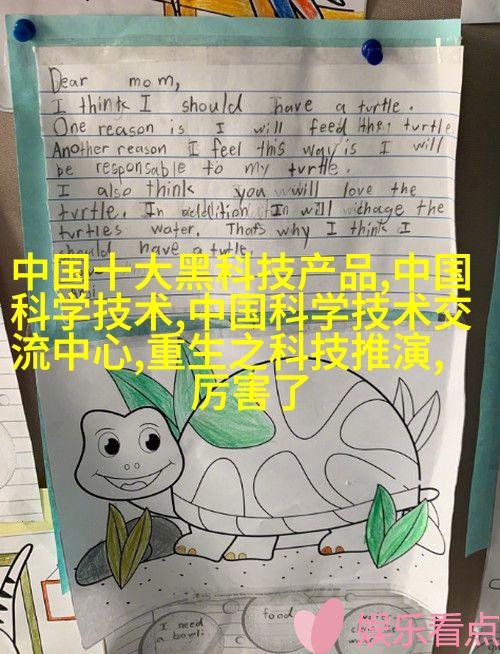 Dear mom,
I think I should have a turtle.
One reason is I will feed the turtle.
Another reason I feel this way is I will
be responsable to my turtle.
I also think you will love the
turtle. In addition I will chage the
turtles water. That's why I think I
should have a turtle.
中国十大黑科技产品,中国
科学技术,中国科学技术交
流中心,重生之科技推演,
厉害了
I need
a bowl
food
娱乐看点